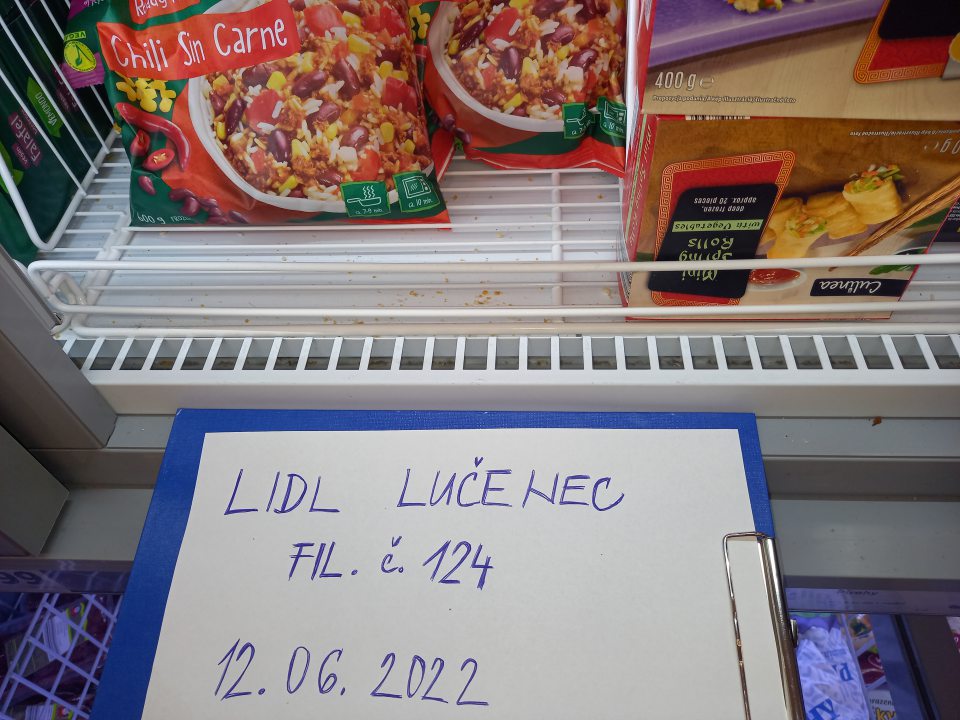 Chili Sin Carne
VEGAN
Falafel
ca. 10 min.
600 g
400 g e
Mini
Spring
Rolls
with Vegetables
deep frozen,
approx 20 pieces
Culinea
LIDL LUČENEC
FIL. č. 124
12. 06. 2022